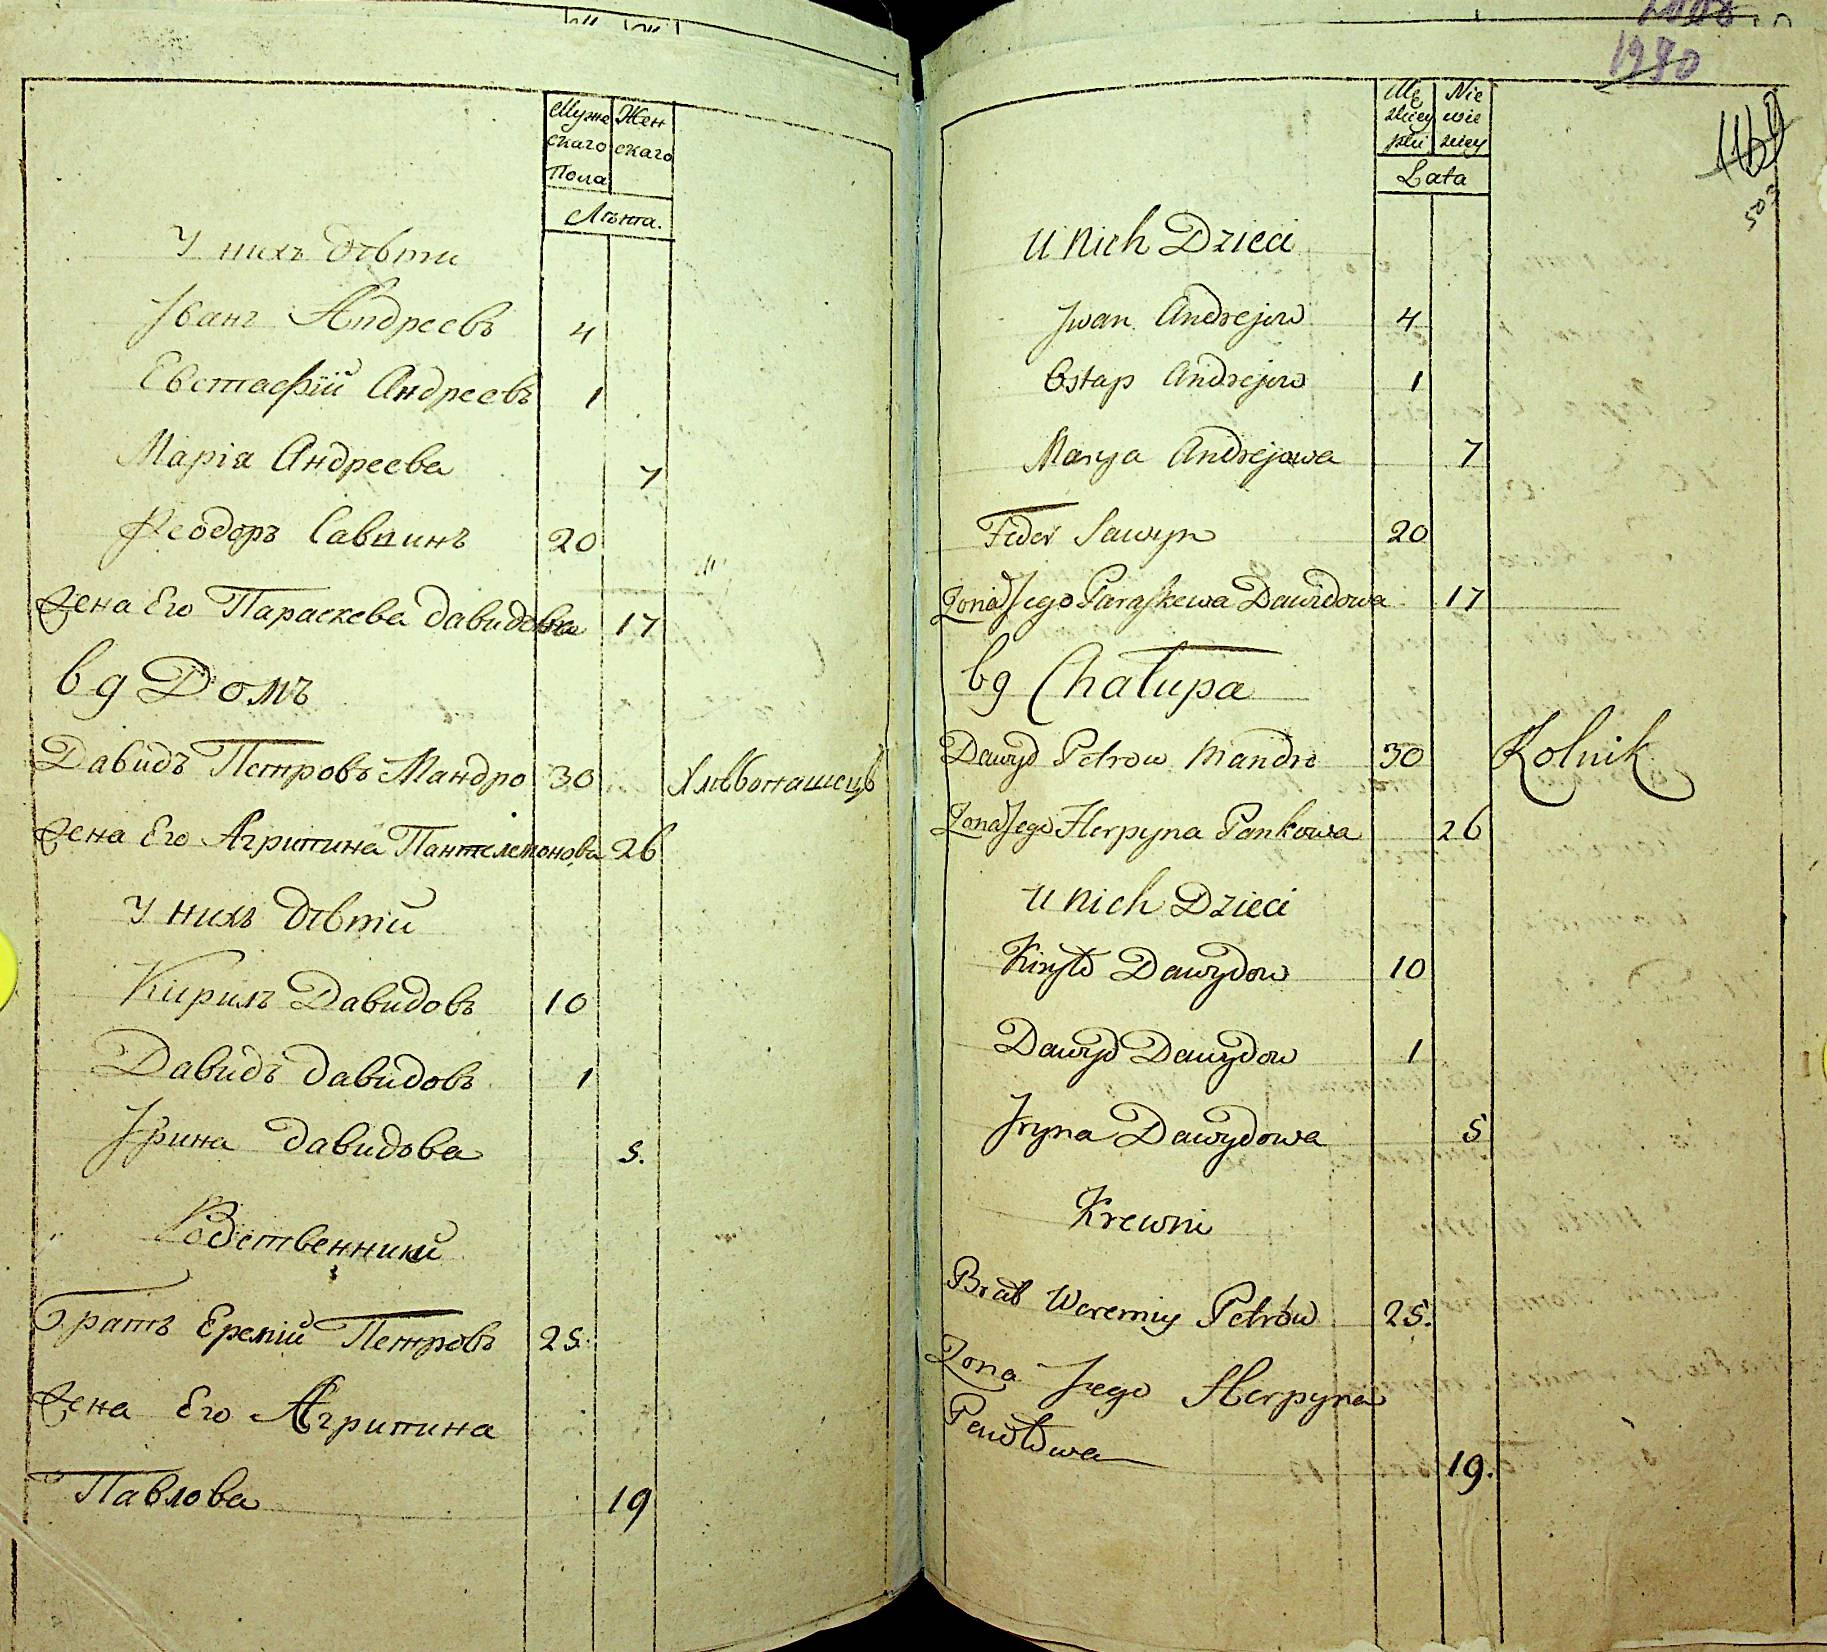 Муже Жен
скаго скаго
Пола
Лѣта.
У нихъ дѣти
Іванъ Андреевъ 4
Евстафій Андреевъ 1
Марія Андреева 7
Феодоръ Саввинъ 20
Жена Его Параскева Давидова 17
69 Домъ
Давидъ Петровъ Мандро 30 Хлѣбопашецъ
Жена Его Агрипина Пантелемонова 26
У нихъ дѣти
Кирилъ Давидовъ 10
Давидъ Давидовъ 1
Ірина Давидова 5.
Родственники
Братъ Еремій Петровъ 25.
Жена Его Агрипина
Павлова 19
1980
Mę Nie
zkiey wie
płci sciey
Lata
U nich Dzieci
Jwan Andrejow 4
Ostap Andrejow 1
Marya Andrejowa 7
Fedor Sawyn 20
Żona Jego Paraskewa Dawidowa 17
69 Chałupa
Dawyd Petrow Mandro 30 Rolnik
Żona Jego Herpyna Pankowa 26
U nich Dzieci
Kiryło Dawydow 10
Dawyd Dawydow 1
Iryna Dawydowa 5
Krewni
Brat Weremiy Petrów 25.
Żona Jego Herpyna
Pawłowa 19.